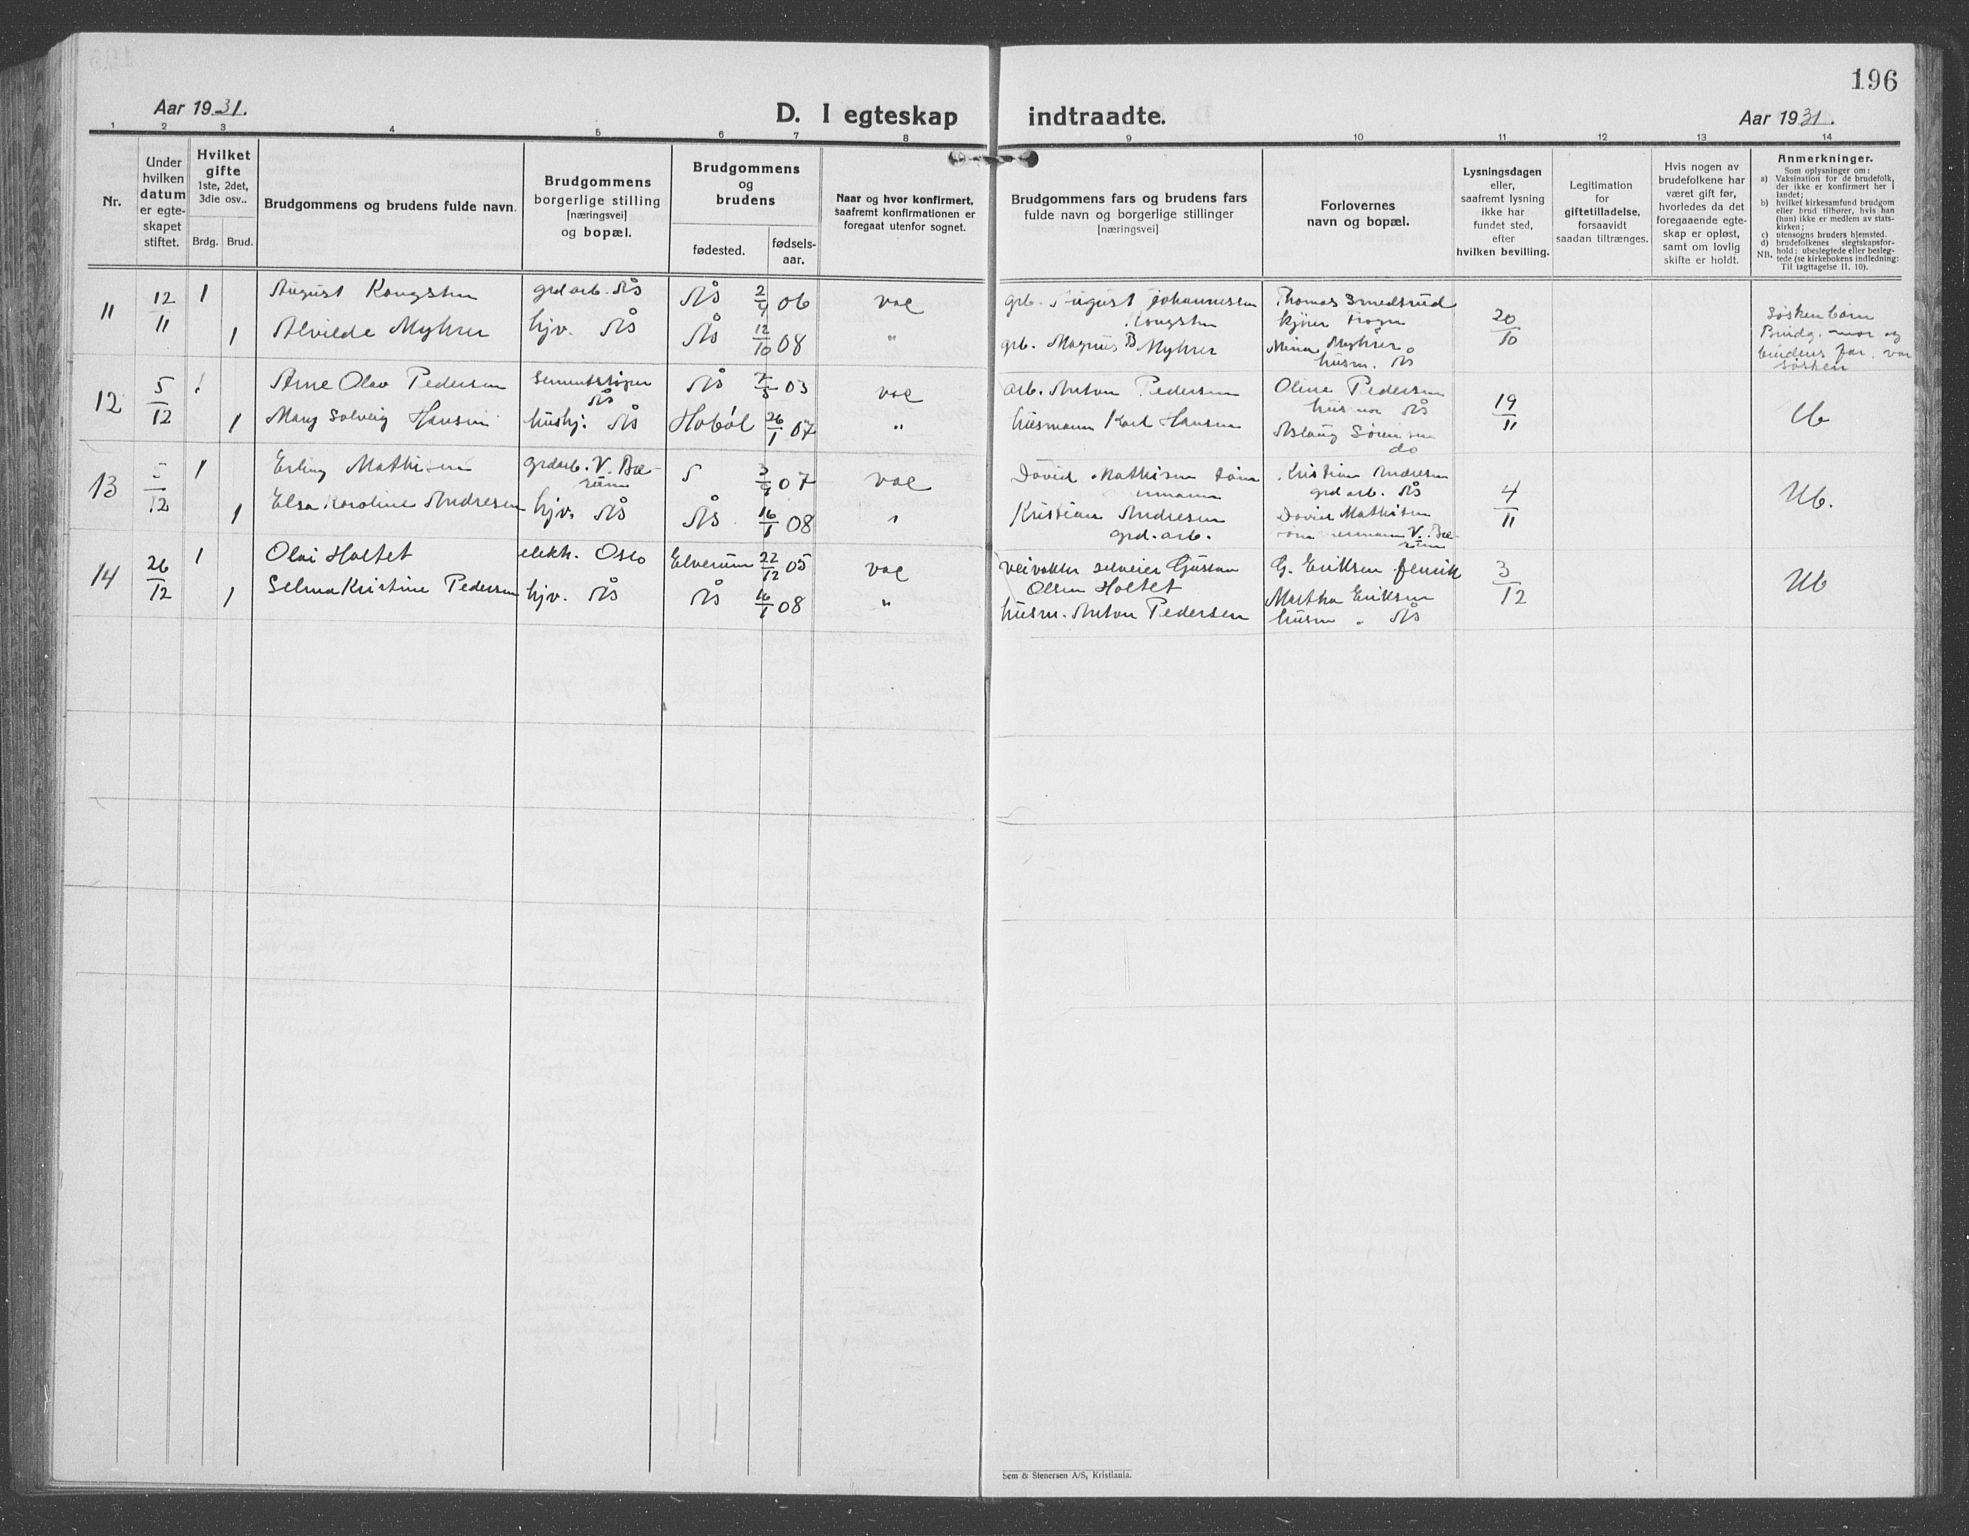 196
Aar 1931.
D. I egteskap indtraadte.
Aar 1931.
1 2 3 4 5 6 7 8 9 10 11 12 13 14
Nr.
Under hvilken datum er egteskapet stiftet.
Hvilket gifte 1ste, 2det, 3die osv..
Brdg. Brud.
Brudgommens og brudens fulde navn.
Brudgommens borgerlige stilling [næringsvei] og bopæl.
Brudgommens og brudens
fødested.
fødselsaar.
Naar og hvor konfirmert, saafremt konfirmationen er foregaat utenfor sognet.
Brudgommens fars og brudens fars fulde navn og borgerlige stillinger [næringsvei]
Forlovernes navn og bopæl.
Lysningsdagen eller, saafremt lysning ikke har fundet sted, efter hvilken bevilling.
Legitimation for giftetilladelse, forsaavidt saadan tiltrænges.
Hvis nogen av brudefolkene har været gift før, hvorledes da det foregaaende egteskap er opløst, samt om lovlig skifte er holdt.
Anmerkninger.
Som oplysninger om:
a) Vaksination for de brudefolk, der ikke er konfirmert her i landet;
b) hvilket kirkesamfund brudgom eller brud tilhører, hvis han (hun) ikke er medlem av statskirken;
c) utensogns bruders hjemsted.
d) brudefolkenes slegtskapsforhold: ubeslegtede eller beslegtede (se kirkebokens indledning:
NB. Til iagttagelse 11. 10).
11 12/11 1 August Kongsten grdarb. Ås Ås 2/4 06 vac grb. August Johannessen Kongsten Thomas Smedsrud Frogn 20/10 Søskenbarn
1 Alvilde Myhrer hjv. Ås Ås 12/10 08 " grb. Magnus B Myhrer Mina Myhrer husm. Ås Brudg. mor og brudens far var søsken
12 5/12 1 Arne Olav Pedersen Sementstøper Ås Ås 2/5 03 vac arb. Anton Pedersen Oline Pedersen husmor Ås 19/11 Ub
1 Mary Solveig Hansen hushj. Ås Hobøl 26/1 07 " husmann Karl Hansen Aslaug Sørensen do
13 5/12 1 Erling Mathisen grdarb. V. Bærum 07 vac David Mathisen Kristian Andresen grdarb. Ås 4/11 Ub.
1 Elsa Karoline Andresen hjv. Ås Ås 16/1 08 " Kristian Andresen grd. arb. David Mathisen V. Bærum
14 26/12 1 Olai Holtet elektr. Oslo Elverum 22/12 05 vac veivokter selveier Gustav Olsen Holtet G. Eriksen 3/12 Ub
1 Selma Kristine Pedersen hjv. Ås Ås 16/1 08 " husm. Anton Pedersen Martha Eriksen husm. Ås
Sem & Stenersen A/S, Kristiania.